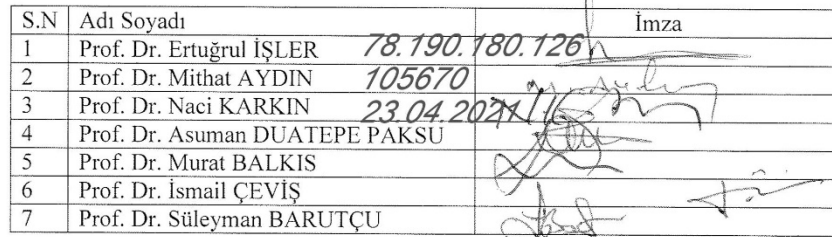 S.N Adı Soyadı İmza
1 Prof. Dr. Ertuğrul İŞLER 78.190.180.126
2 Prof. Dr. Mithat AYDIN 105670
3 Prof. Dr. Naci KARKIN 23.04.2021
4 Prof. Dr. Asuman DUATEPE PAKSU
5 Prof. Dr. Murat BALKIS
6 Prof. Dr. İsmail ÇEVİŞ
7 Prof. Dr. Süleyman BARUTÇU